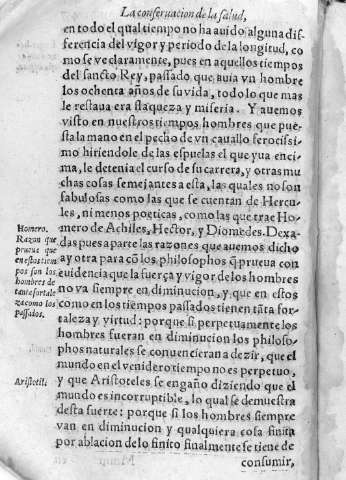 La conseruacion de la salud,
en todo el qual tiempo no ha auido alguna dif-
ferencia del vigor y periodo de la longitud, co
mo se ve claramente, pues en aquellos tiempos
del sancto Rey, passado que auia vn hombre
los ochenta años de su vida, todo lo que mas
le restaua era flaqueza y miseria. Y auemos
visto en nuestros tiempos hombres que pue-
sta la mano en el pecho de vn cauallo ferocissi-
mo hiriendole de las espuelas el que yua enci-
ma, le detenia el curso de su carrera, y otras mu
chas cosas semejantes a esta, las quales no son
fabulosas como las que se cuentan de Hercu-
les, ni menos poeticas, como las que trae Ho-
mero de Achiles, Hector, y Diomedes. Dexa-
das pues a parte las razones que auemos dicho
ay otra para cõ los philosophos q̃ prueua con
euidencia que la fuerça y vigor de los hombres
no va siempre en diminucion, y que en estos
como en los tiempos passados tienen tãta for-
taleza y virtud: porque si perpetuamente los
hombres fueran en diminucion los philoso-
phos naturales se conuencieran a dezir, que el
mundo en el venidero tiempo no es perpetuo,
y que Aristoteles se engaño diziendo que el
mundo es incorruptible, lo qual se demuestra
desta fuerte: porque si los hombres siempre
van en diminucion y qualquiera cosa finita
por ablacion de lo finito finalmente se tiene de
consumir,
Homero.
Razon que
prueua que
en estos tiem
pos son los
hombres de
tanta fortale
za como los
passados.
Aristoti.